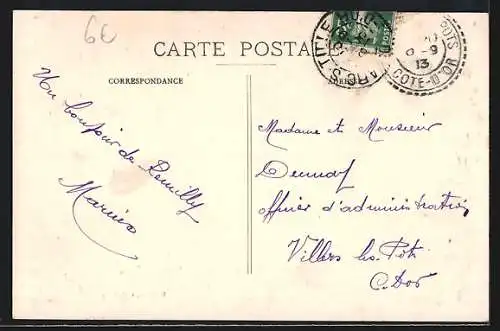 6€
CARTE POSTALE
CORRESPONDANCE
Un bonjour de Remilly
Marius
Madame et Monsieur
officier d'administration
Villers les Pots
C. D'or
POTS
9
13
COTE-D'OR